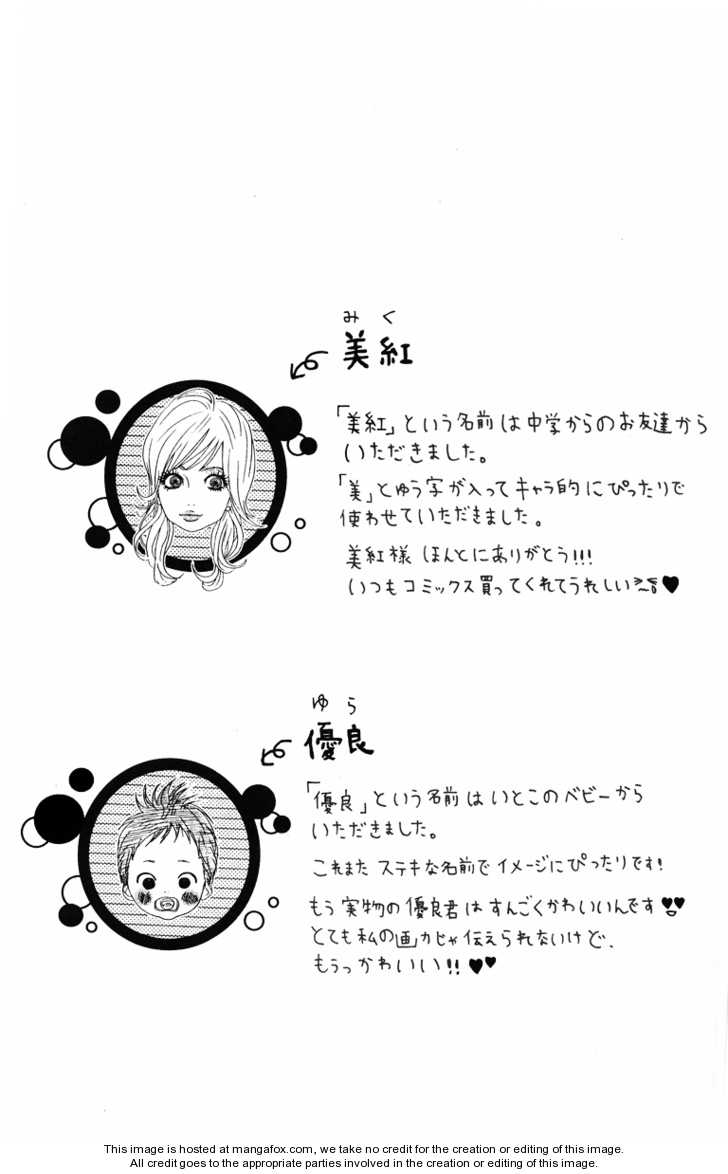 みく
美紅
「美紅」という名前は中学からのお友達から
いただきました。
「美」とゆう字が入ってキャラ的にぴったりで
使わせていただきました。
美紅様 ほんとにありがとう!!!
いつもコミックス買ってくれてうれしい♥
ゆら
優良
「優良」という名前はいとこのベビーから
いただきました。
これまた ステキな名前で イメージにぴったりです!
もう 実物の優良君はすんごくかわいいんです♥♥
とても私の画力じゃ伝えられないけど、
もうっかわいい!!♥♥
This image is hosted at mangafox.com, we take no credit for the creation or editing of this image.
All credit goes to the appropriate parties involved in the creation or editing of this image.